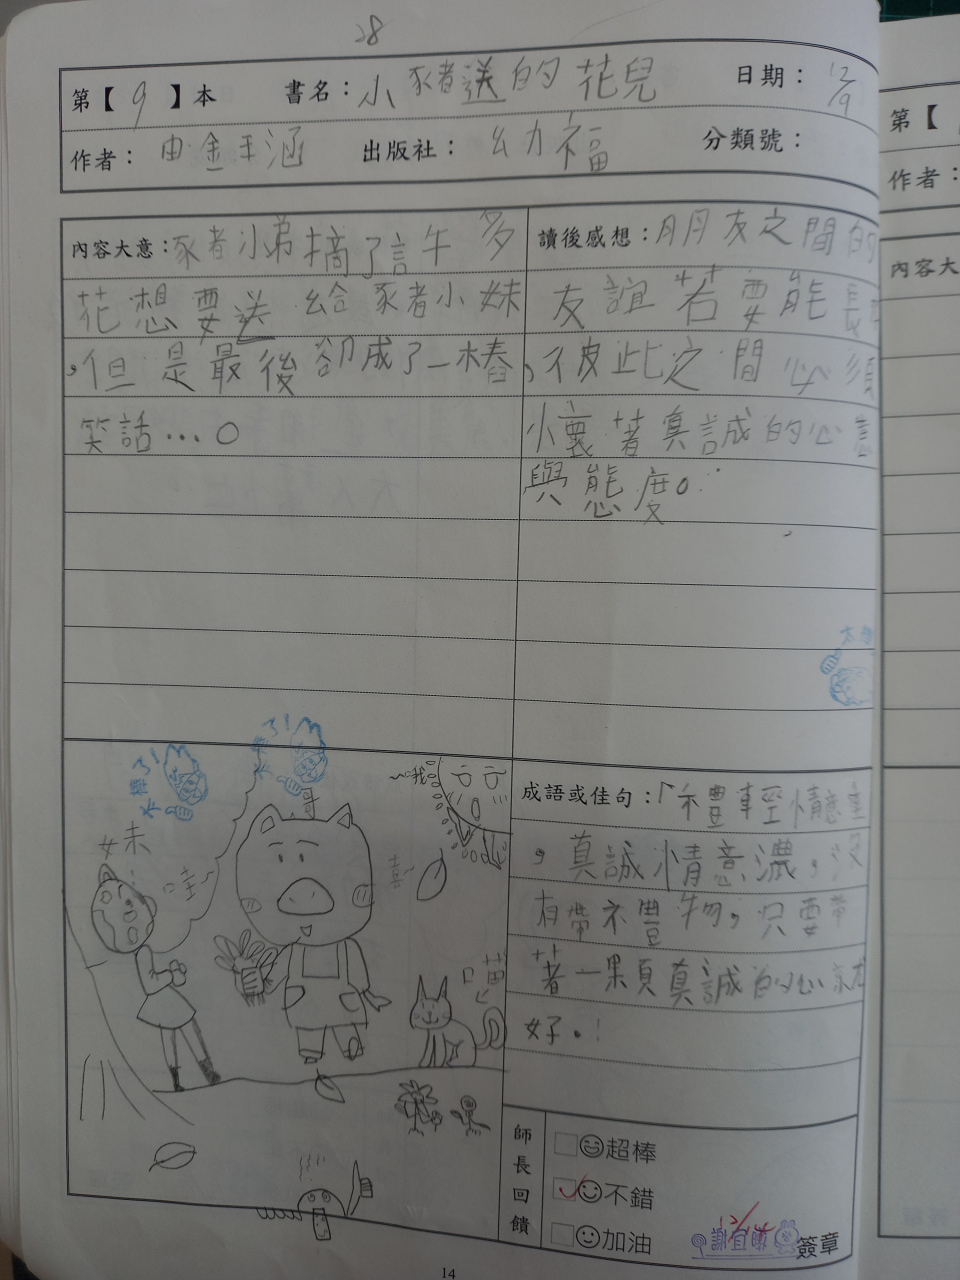 28
第【 9 】本 書名：小豬送的花兒 日期：12/9
作者：金玉涵 出版社：幼福 分類號：
內容大意：豬小弟摘了許多
花想要送給豬小妹
，但是最後卻成了一樁
笑話…。
讀後感想：朋友之間的
友誼若要能長
，彼此之間必須
懷著真誠的心意
與態度。
太棒了！
太棒了！
妹
哇~
哥
喜~
喵
成語或佳句：「禮輕情意重
，真誠情意濃，沒
有帶禮物，只要帶
著一顆真誠的心就
好。
師長回饋
超棒
不錯
加油
12/14
簽章
14
第【
作者：
內容大